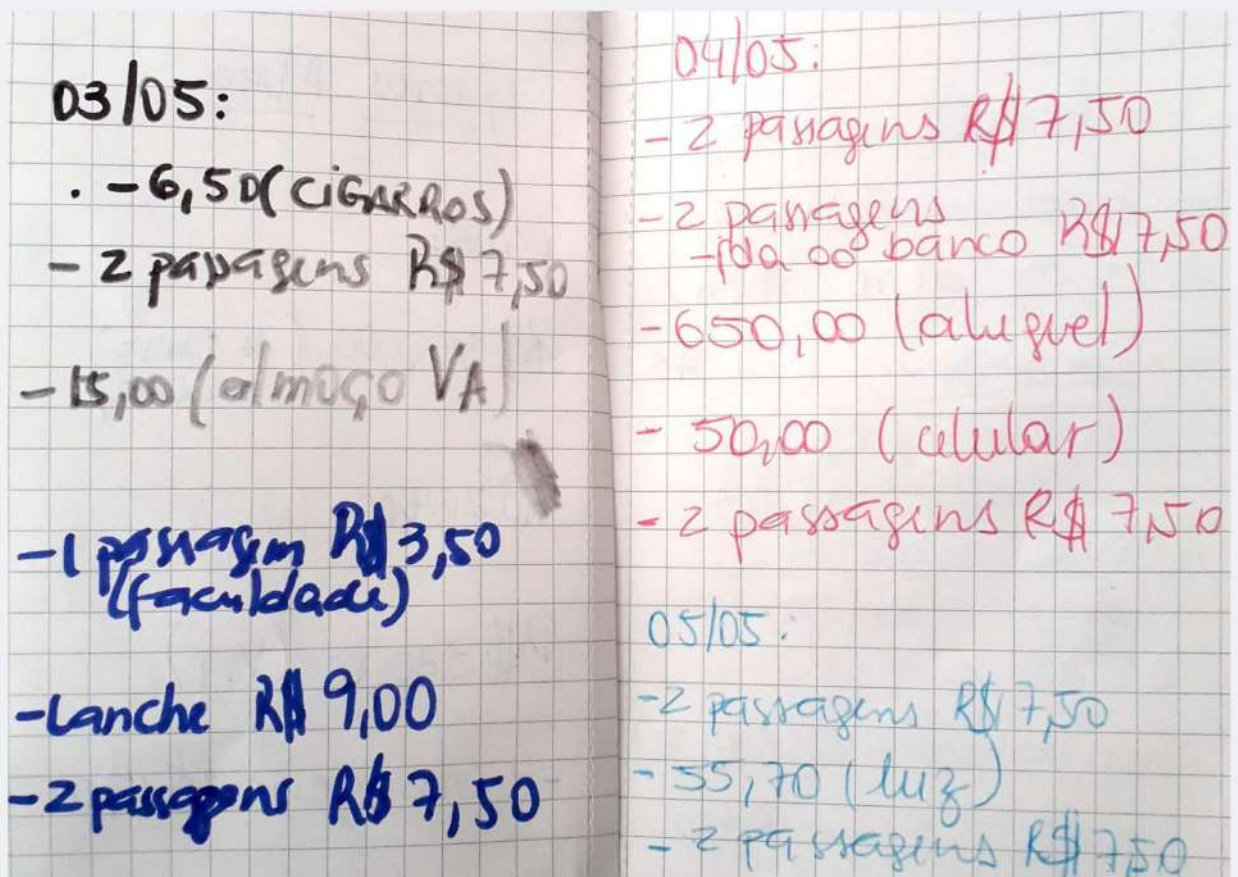 03/05:
. -6,50 (CIGARROS)
- 2 passagens R$ 7,50
- 15,00 (almoço VA)
- 1 passagem R$ 3,50
(faculdade)
- Lanche R$ 9,00
- 2 passagens R$ 7,50
04/05:
- 2 passagens R$ 7,50
- 2 passagens
- ida ao banco R$ 7,50
- 650,00 (aluguel)
- 50,00 (celular)
- 2 passagens R$ 7,50
05/05:
- 2 passagens R$ 7,50
- 55,70 (luz)
- 2 passagens R$ 7,50